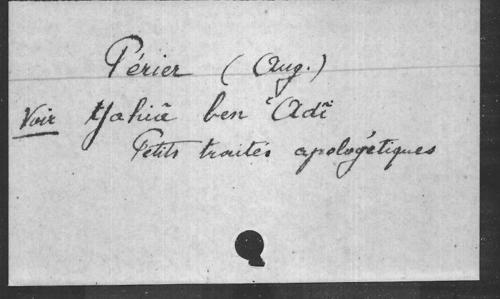 Périer (Aug.)
Voir Yahiâ ben ʿAdî
Petits traités apologétiques